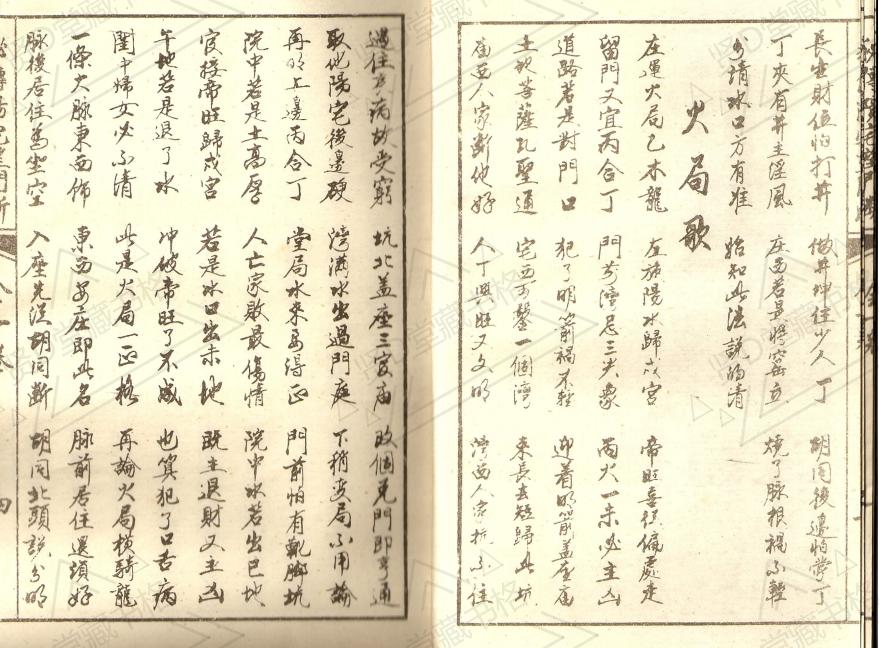 長生財位怕打井 做井坤住少人丁 胡同後邊怕當丁
丁夾有井主淫風 庄西若是將窑立 燒了脉根禍不輕
分清水口方有准 始知此法說的清
火局歌
左運火局乙木龍 左旋陽水歸戌宮 帝旺喜得偏處走
留門又宜丙合丁 門前灣忌三尖象 兩火一来必主凶
道路若是對門口 犯了明箭禍不輕 迎着明箭蓋座庙
土地菩薩孔聖通 宅西可鑿一個灣 来長去短歸此坑
庙西人家漸他好 人丁興旺又文明 灣西人家抗不住
過往多病故受窮 坑北蓋座三官庙 改個兌門即亨通
取他陽宅後邊硬 灣滿水出過門庭 下稍变局不用論
再明上邊丙合丁 堂局水来要得正 門前怕有靴脚坑
院中若是土高厚 人亡家敗最傷情 院中水若出巳地
官控帝旺歸戌宮 若是水口出未地 既主退財又主凶
午地若是退了水 冲破帝旺了不成 也算犯了口舌病
閨中婦女必不清 此是火局一正格 再論火局横騎龍
一條大脉東西佈 東西安庄即此名 脉前居住還須好
脉後居住為坐空 入座先從胡同断 胡同北頭說分明